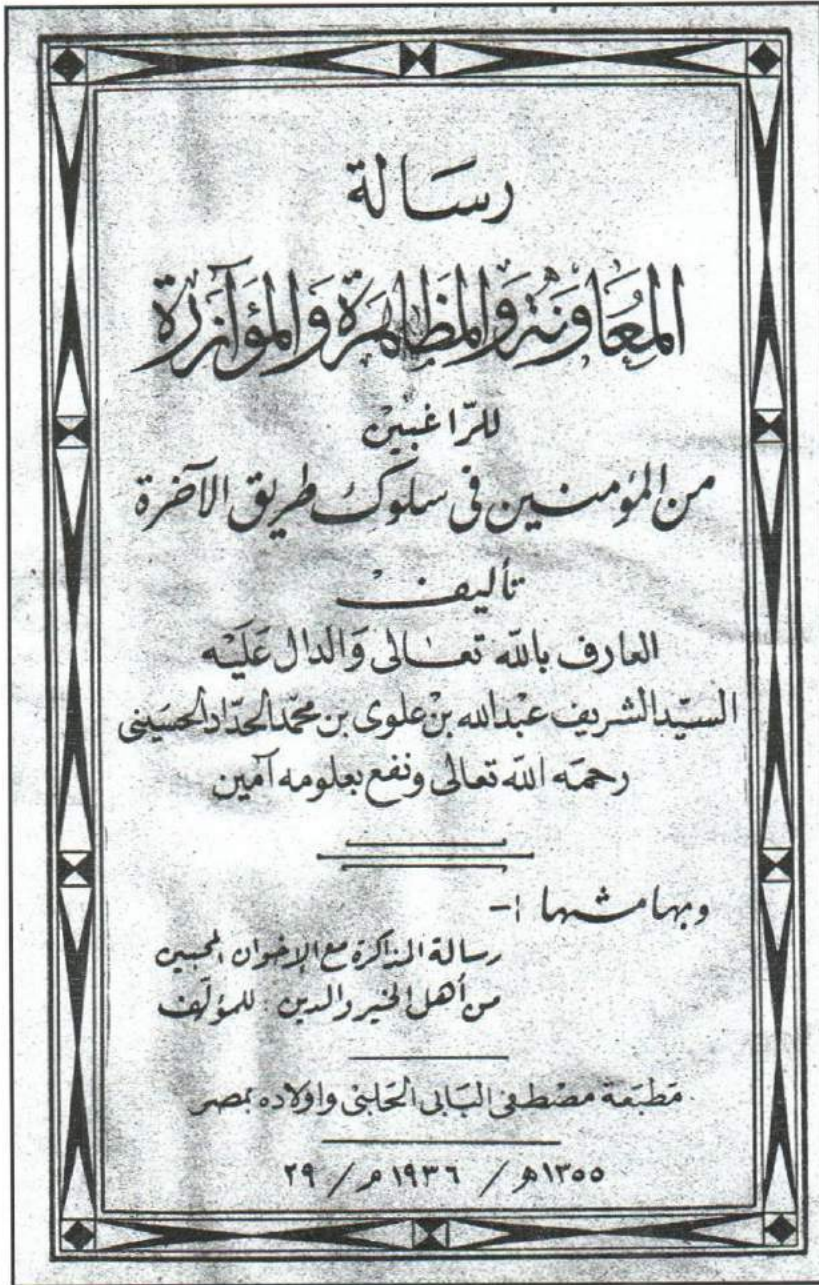 رسالة
المعاونة والمظاهرة والمؤازرة
للرّاغبين
من المؤمنين في سلوك طريق الآخرة
تأليف
العارف بالله تعالى وَالدال عَليْه
السيّد الشريف عبْد الله بن علوى بن محمّد الحدّاد الحسَينى
رحمَه الله تعالى ونفع بعلومه آمين
وبهامشها :-
رسالة المذاكرة مع الإخوان المحبين
من أهل الخير والدين . للمؤلف
مَطبَعة مصْطفى البَابى الحَلبى واولاده بمصر
١٣٥٥هـ / ١٩٣٦م / ٢٩